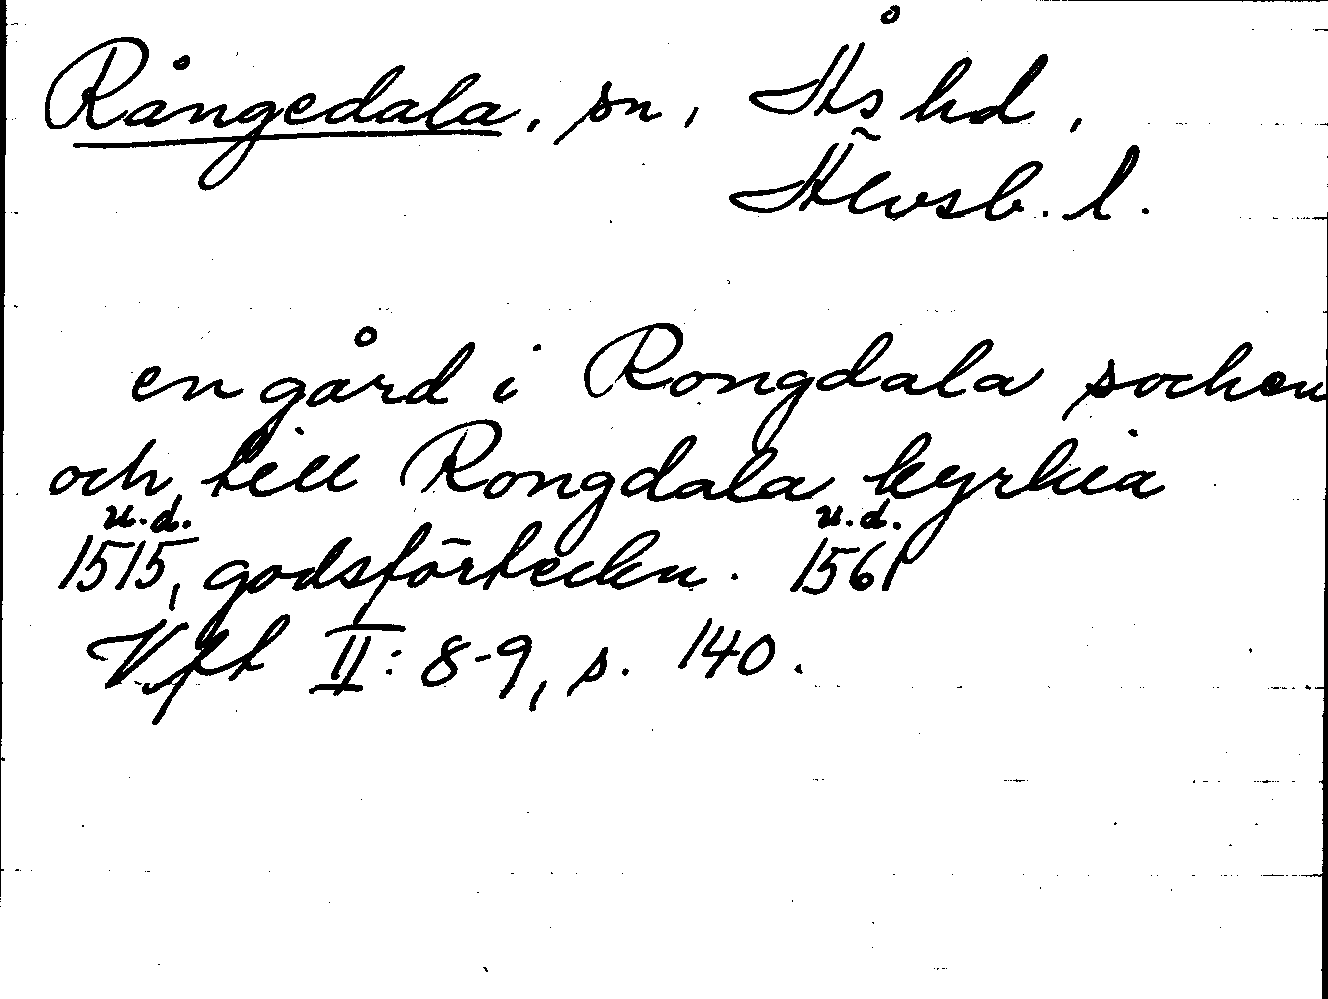 Rångedala, sn, Ås hd,
Älvsb. l.
en gård i Rongdala sochen
och till Rongdala kyrkia
u.d. u.d.
1515, godsförteckn. 1561
Vft II: 8-9, s. 140.